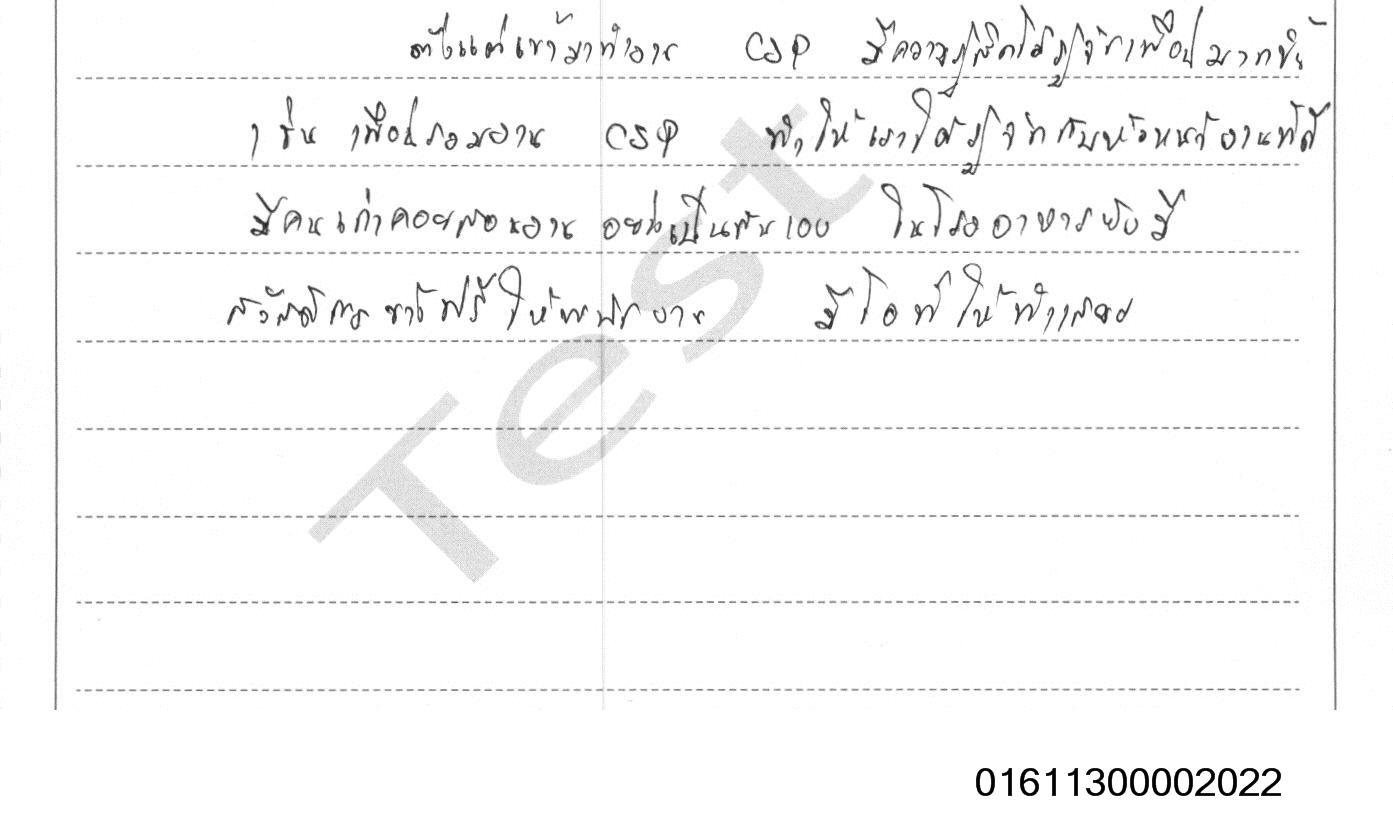 ตั้งแต่เข้ามาทำงาน CSP มีความรู้สึกได้รู้จักเพื่อนมากขึ้น
เช่น เพื่อนร่วมงาน CSP ทำให้เราได้รู้จักกับหัวหน้างานที่ดี
มีคนเก่าคอยสอนงาน อย่างเป็นกันเอง ในโรงอาหารยังมี
สวัสดิการ ข้าวฟรีให้พนักงาน มีโอทีให้ทำเสมอ
Test
01611300002022